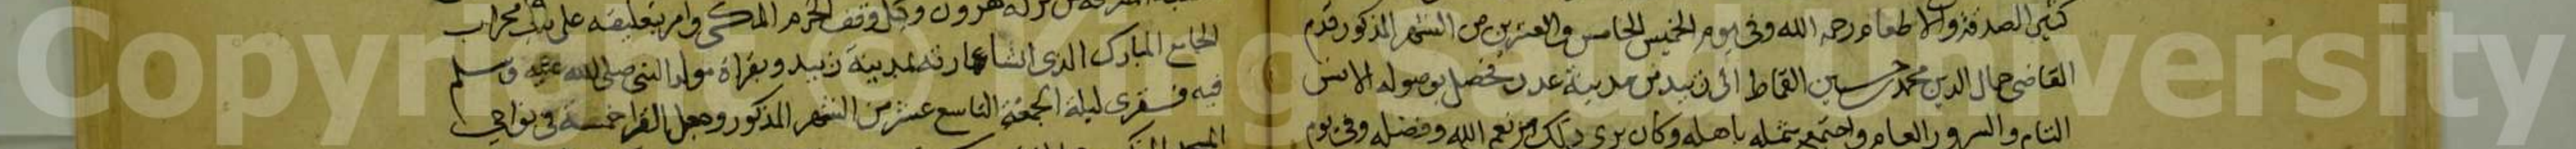 كثير الصدقة والاطعام رحمه الله وفي يوم الخميس الخامس والعشرين من الشهر المذكور قدم
القاضي جمال الدين محمد حسين القماط الى زبيد من مدينة عدن فحصل بوصوله الانس
التام والسرور العام واجتمع شمله باهله وكان يرى ذلك من نعم الله وفضله وفي يوم
هرون وكل وقف الحرم المكي وامر بتعليقه على باب محراب
الجامع المبارك الذي انشا عمارته بمدينة زبيد وبقراة مولد النبي صلى الله عليه وسلم
فيه فقرى ليلة الجمعة التاسع عشر من الشهر المذكور وجعل القرا خمسة في نواحي
Copyright King University